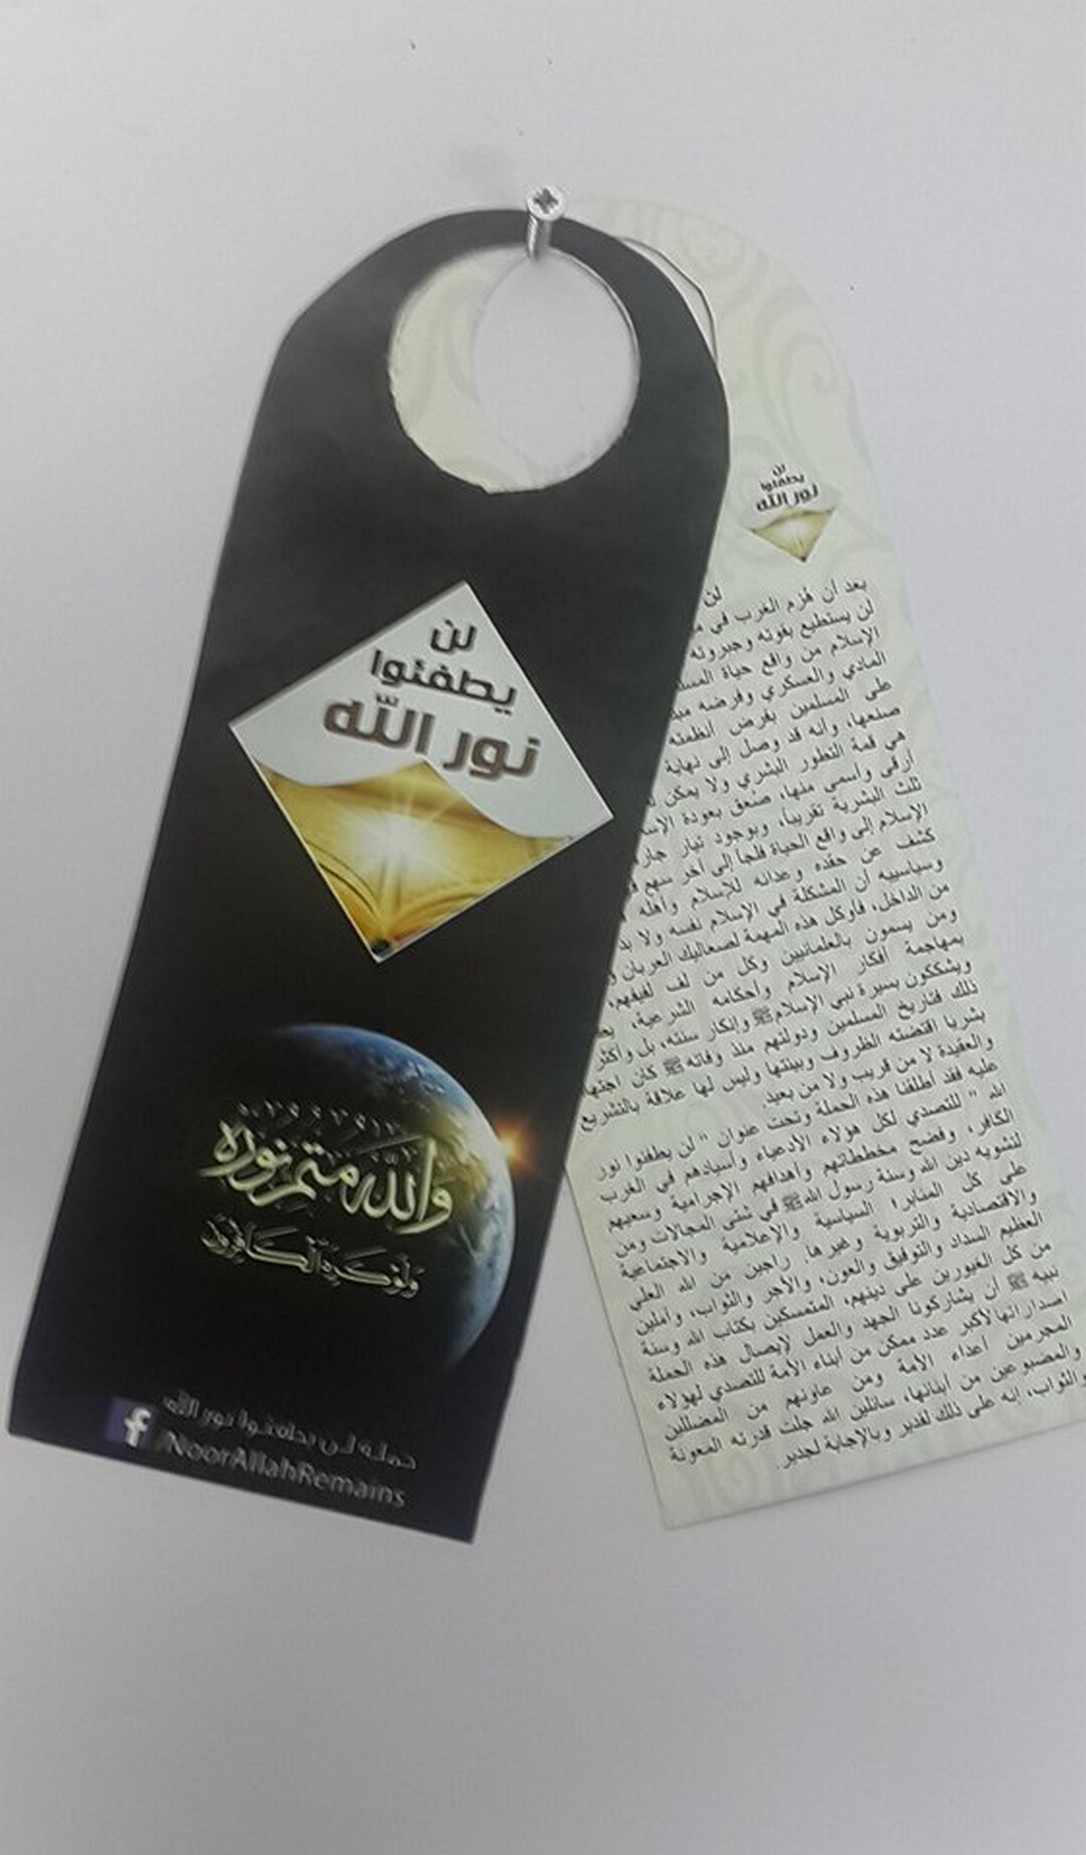 لن
يطفئوا
نور الله
والله متم نوره
ولو كره الكافرون
حملة لن يطفئوا نور الله
NoorAllahRemains
لن
يطفئوا
نور الله
لن
بعد أن هُزم الغرب في
لن يستطيع بقوته وجبروته
الإسلام من واقع حياة
المادي والعسكري وفرضه
على المسلمين بفرض أنظمته
صنعها، وأنه قد وصل إلى نهاية
هي قمة التطور البشري ولا يمكن
أرقى وأسمى منها، صُعق بعودة
ثلث البشرية تقريباً، وبوجود تيار
الإسلام إلى واقع الحياة فلجأ إلى آخر سهم
كشف عن حقده وعدائه للإسلام وأهله
وسياسييه أن المشكلة في الإسلام نفسه ولا بد
من الداخل، فأوكل هذه المهمة لصعاليك العربان
ومن يسمون بالعلمانيين وكل من لف لفيفهم،
بمهاجمة أفكار الإسلام وأحكامه الشرعية،
ويشككون بسيرة نبي الإسلام ﷺ وإنكار سنته، بل وأكثر
ذلك فتاريخ المسلمين ودولتهم منذ وفاته ﷺ كان
بشريا اقتضته الظروف وبيئتها وليس لها علاقة بالتشريع
والعقيدة لا من قريب ولا من بعيد.
عليه فقد أطلقنا هذه الحملة وتحت عنوان " لن يطفئوا نور
الله " للتصدي لكل هؤلاء الأدعياء وأسيادهم في الغرب
الكافر، وفضح مخططاتهم وأهدافهم الإجرامية وسعيهم
لتشويه دين الله وسنة رسول الله ﷺ في شتى المجالات ومن
على كل المنابر! السياسية والإعلامية والاجتماعية
والاقتصادية والتربوية وغيرها. راجين من الله العلي
العظيم السداد والتوفيق والعون، والأجر والثواب، وآملين
من كل الغيورين على دينهم، المتمسكين بكتاب الله وسنة
نبيه ﷺ أن يشاركونا الجهد والعمل لإيصال هذه الحملة
إصداراتها لأكبر عدد ممكن من أبناء الأمة للتصدي لهؤلاء
المجرمين أعداء الأمة ومن عاونهم من المضللين
والمضبوعين من أبنائها، سائلين الله جلت قدرته المعونة
والثواب، إنه على ذلك لقدير وبالإجابة لجدير.